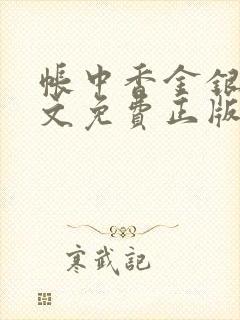 帐中香金銀
文免費正版
寒武記